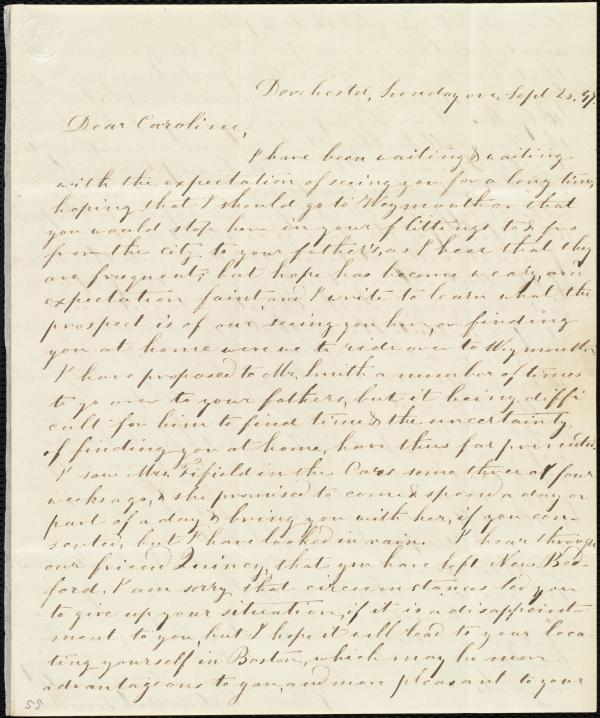 Dorchester, Sunday eve, Sept 25. 47.
Dear Caroline,
I have been waiting & waiting
with the expectation of seeing you for a long time,
hoping that I should go to Weymouth or that
you would stop here in your flittings to & fro
from the city to your father's, as I hear that they
are frequent; but hope has become weary, and
expectation faint and I write to learn what the
prospect is of our seeing you here, or finding
you at home were we to ride over to Weymouth.
I have proposed to Mr. Smith a number of times
to go over to your father's, but it being diffi
cult for him to find time & the uncertainty
of finding you at home, have thus far prevented.
I saw Mrs. Fifield in the Cars some three or four
weeks ago, & she promised to come & spend a day or
part of a day & bring you with her, if you con-
sented, but I have looked in vain. I hear through
our friend Quincy, that you have left New Bed-
ford. I am sorry that circumstances led you
to give up your situation, if it is a disappoint-
ment to you, but I hope it will lead to your loca
ting yourself in Boston, which may be more
advantageous to you, and more pleasant to your
55